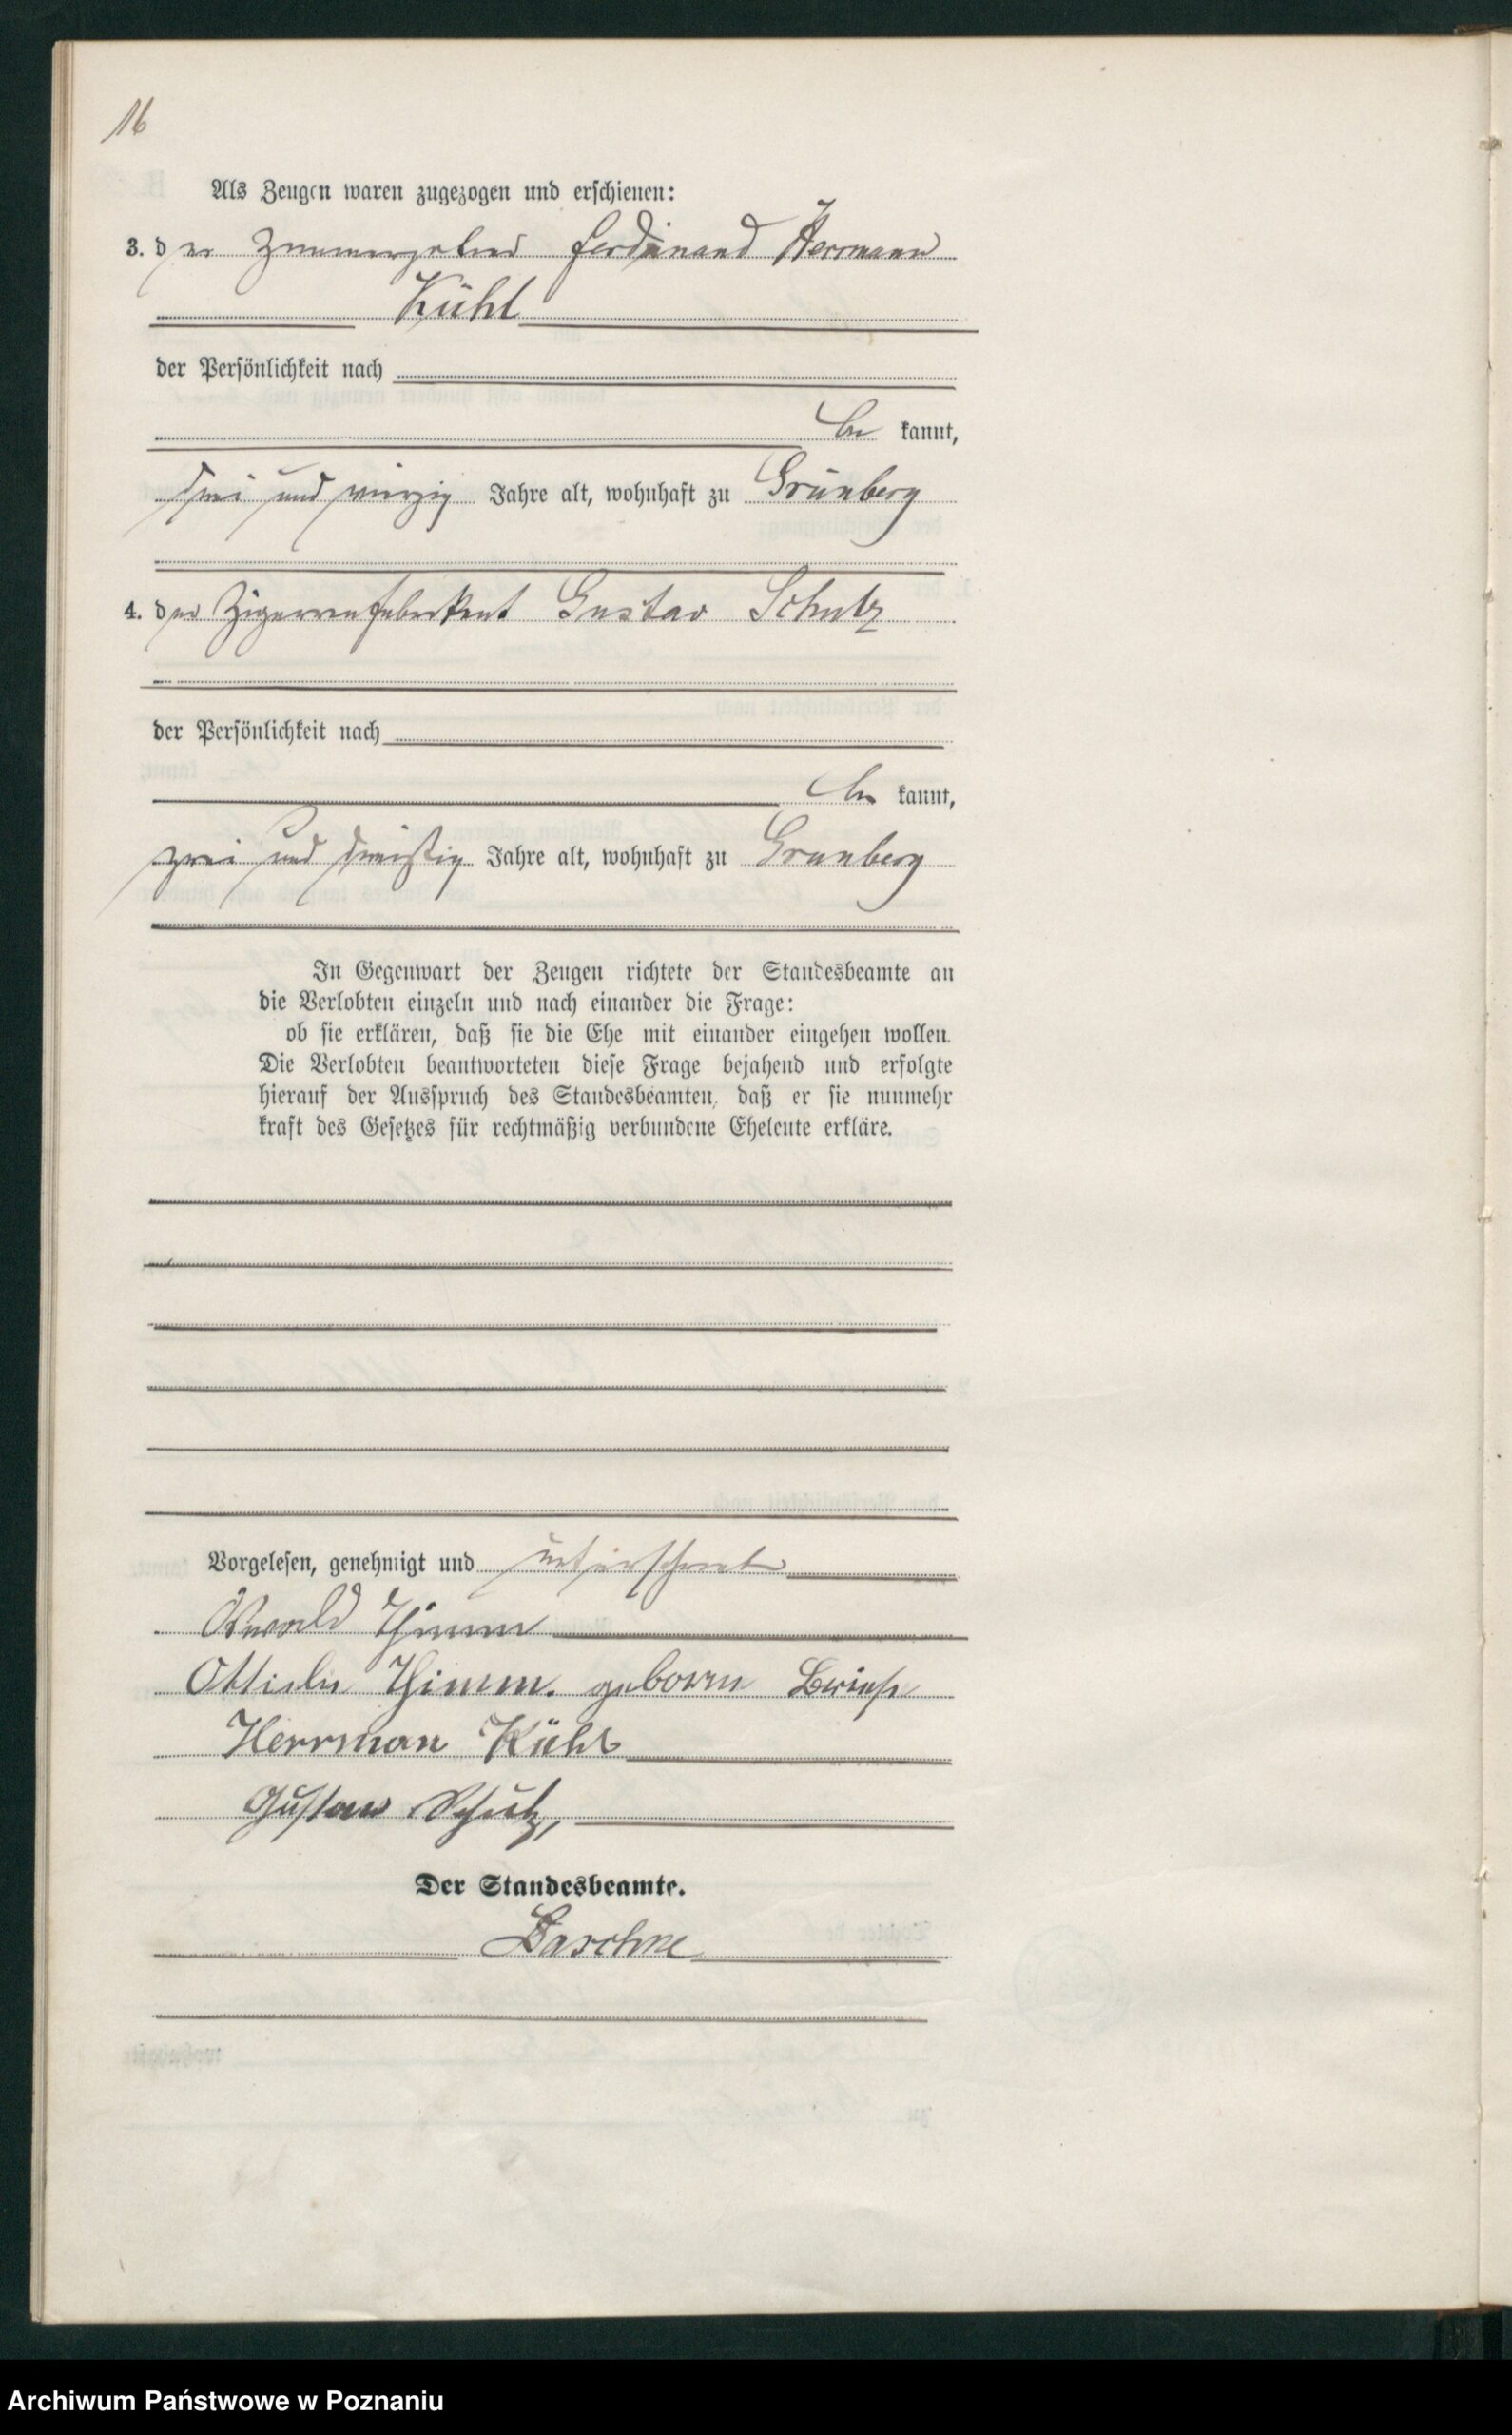 16
Als Zeugen waren zugezogen und erschienen:
3. der Ferdinand Herrmann
Kühl
der Persönlichkeit nach
be kannt,
drei und vierzig Jahre alt, wohnhaft zu Grünberg
4. der Zigarrenfabrikant Gustav Schulz
der Persönlichkeit nach
be kannt,
zwei und dreißig Jahre alt, wohnhaft zu Grünberg
In Gegenwart der Zeugen richtete der Standesbeamte an
die Verlobten einzeln und nach einander die Frage:
ob sie erklären, daß sie die Ehe mit einander eingehen wollen.
Die Verlobten beantworteten diese Frage bejahend und erfolgte
hierauf der Ausspruch des Standesbeamten, daß er sie nunmehr
kraft des Gesetzes für rechtmäßig verbundene Eheleute erkläre.
Vorgelesen, genehmigt und unterschrieben
Thimm
Thimm. geborne
Herrman Kühl
Gustav
Der Standesbeamte.
Archiwum Państwowe w Poznaniu